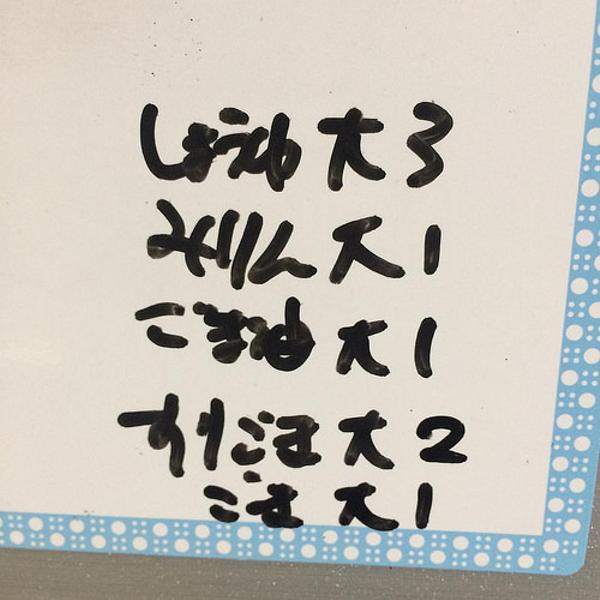 しょうゆ 大 3
みりん 大 1
ごま油 大 1
すりごま 大 2
ごま 大 1